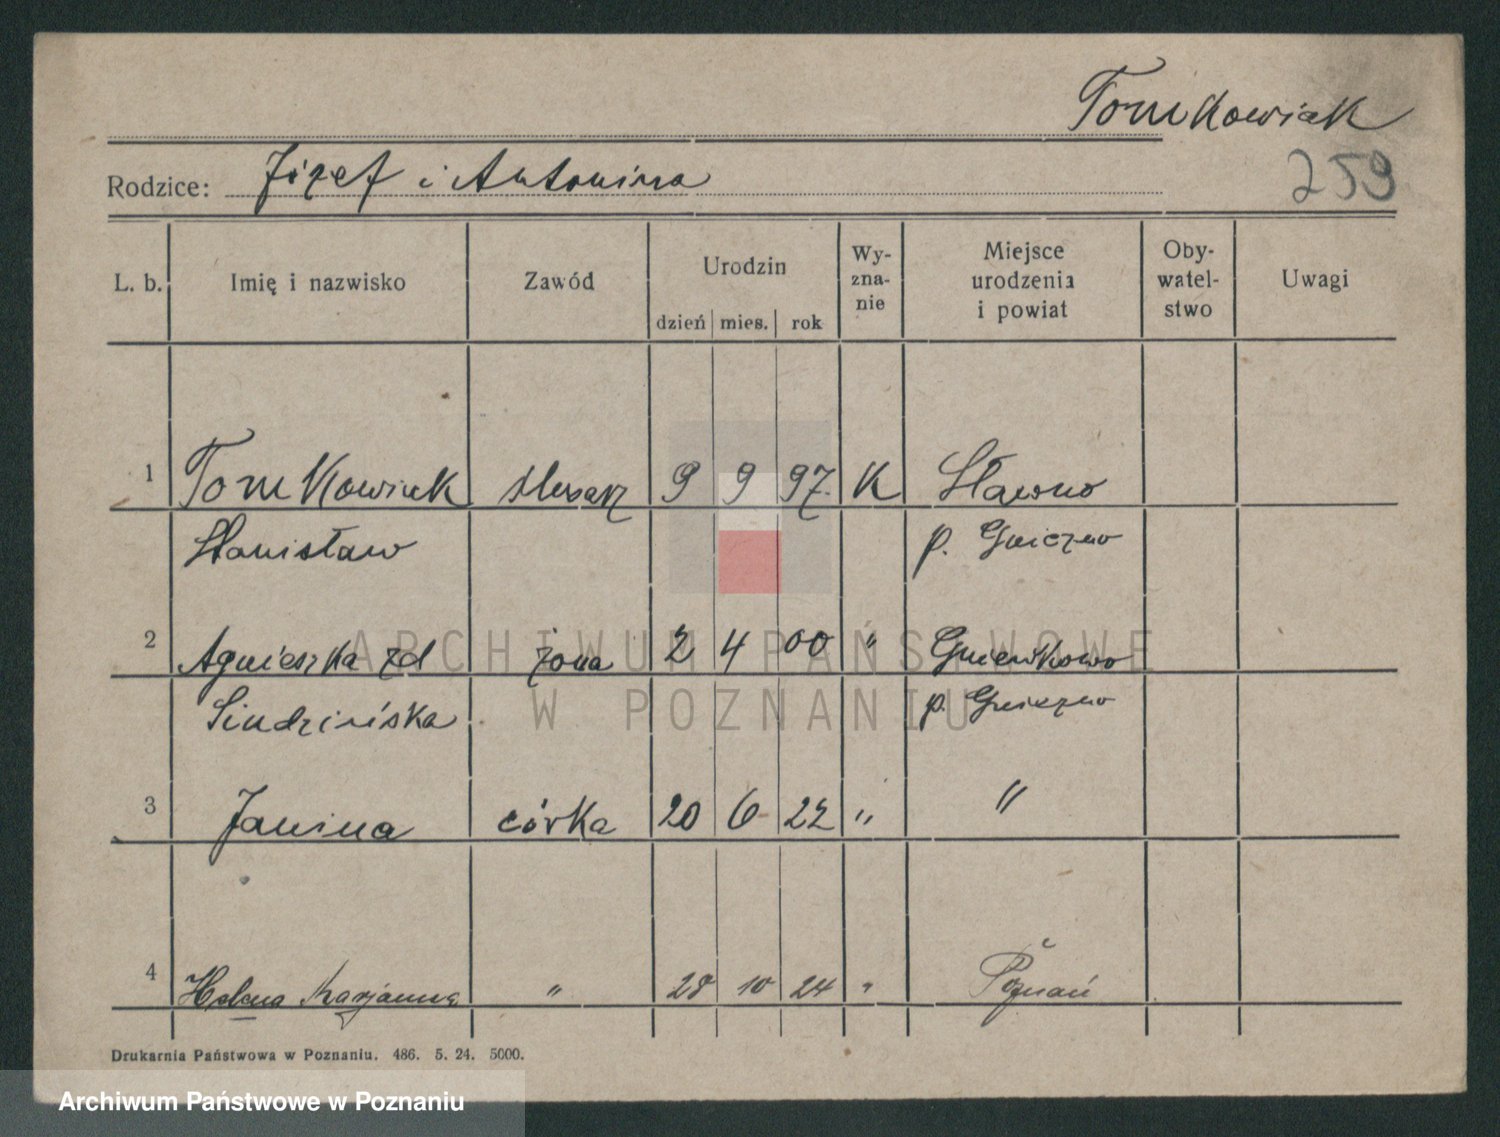 Tomkowiak
Rodzice: Józef i Antonina
259
L. b. Imię i nazwisko Zawód Urodzin Wy- Miejsce Oby- Uwagi
zna- urodzenia watel-
dzień mies. rok nie i powiat stwo
1 Tomkowiak ślusarz 9 9 97. K Sławno
Stanisław p. Gniezno
2 Agnieszka zd żona 2 4 00 " Gniewkowo
Sindzińska p. Gniezno
3 Janina córka 20 6 22 " "
4 Helena Marjanna " 28 10 24 " Poznań
Drukarnia Państwowa w Poznaniu. 486. 5. 24. 5000.
ARCHIWUM PAŃSTWOWE
W POZNANIU
Archiwum Państwowe w Poznaniu